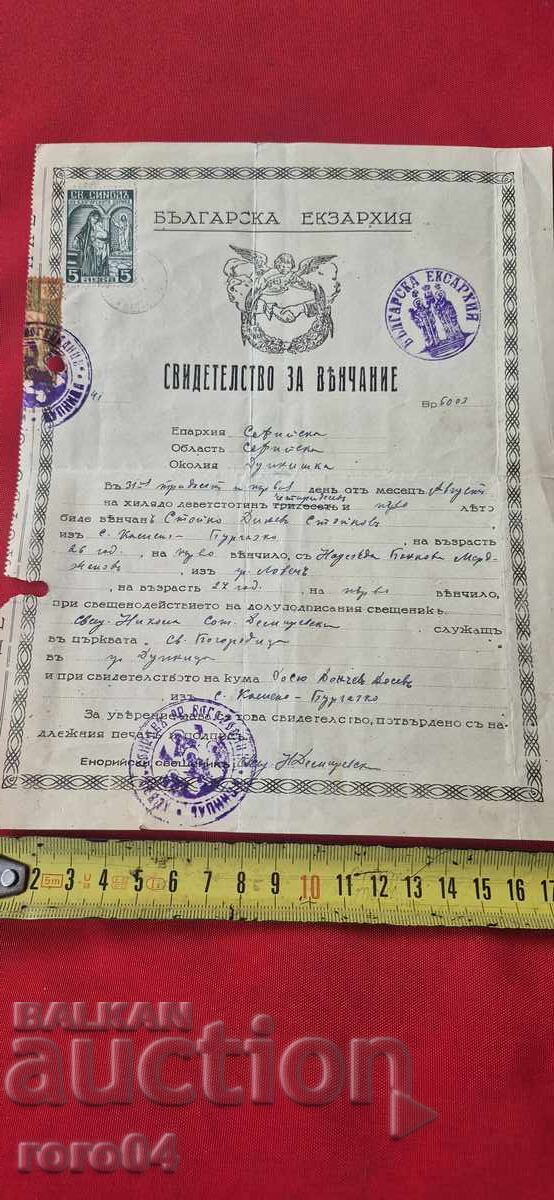 СВ. СИНОДЪ
5 5
БЪЛГАРСКА ЕКЗАРХИЯ
БЪЛГАРСКА ЕКСАРХИЯ
СВИДЕТЕЛСТВО ЗА ВѢНЧАНИЕ
41
Бр 6003
Епархия Софийска
Область Софийска
Околия Дупнишка
Въ 31й тридесет и първий день отъ месецъ Августъ
четиридесеть
на хилядо деветстотинъ тридесеть и първо лѣто
биде вѣнчанъ Стойко Диневъ Стойковъ
изъ с. Камено- , на възрасть
26 год, на първо вѣнчило, съ Надежда
изъ гр. Ловечъ
, на възрасть 27 год., на първо вѣнчило,
при свещенодействието на долуподписания свещеникъ.
Свещ. Никола Сот. Демиревски служащъ
въ църквата Св. Богородица
въ гр. Дупница
и при свидетелството на кума Досю Дончевъ Досевъ
изъ с. Камено-
За уверение дава се това свидетелство, потвърдено съ на-
длежния печатъ и подписъ.
Енорийски свещеникъ: свещ. НДемиревски
2 3 4 5 6 7 8 9 10 11 12 13 14 15 16 17
5m
BALKAN
auction
roro04